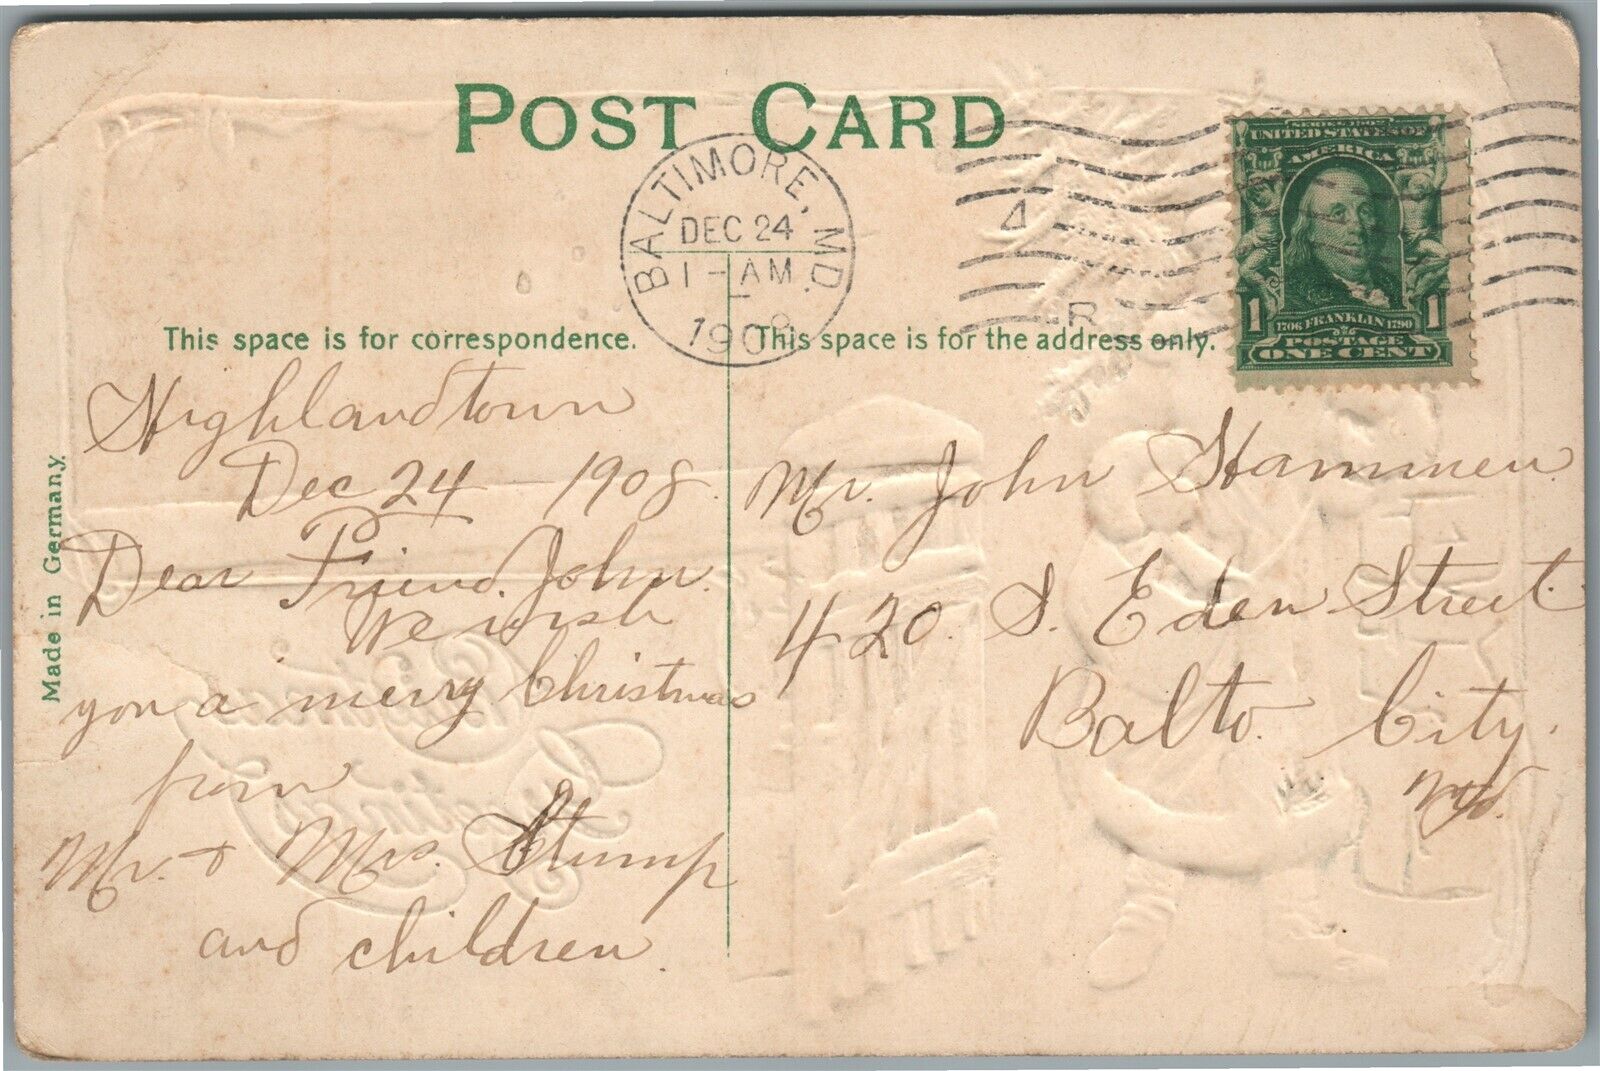 POST CARD
BALTIMORE, MD.
DEC 24
1 - AM
1908
4
R
SERIES 1902
UNITED STATES OF
AMERICA
1 1
1706 FRANKLIN 1790
POSTAGE
ONE CENT
This space is for correspondence.
This space is for the address only.
Made in Germany.
Highlandtown
Dec 24 - 1908.
Dear Friend. John.
We wish
you a merry Christmas
from
Mr. & Mrs. Stump
and children.
Mr. John Stammen
420. S. Eden Street.
Balto. City.
Md.
Christmas
Greetings